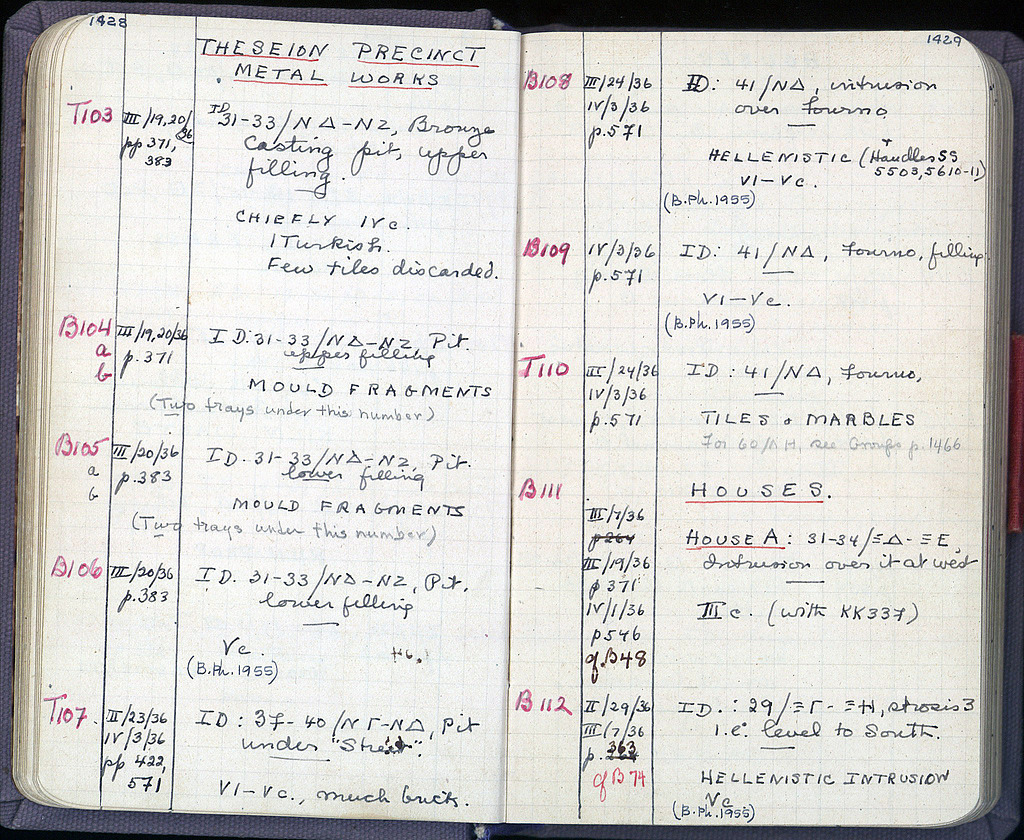 1428
THESEION PRECINCT
METAL WORKS
T103 III/19,20/36 ID 31-33/ΝΔ-ΝΖ, Bronze
pp 371, casting pit, upper
383 filling.
CHIEFLY IVc.
1 Turkish.
Few tiles discarded.
B104 III/19,20/36 ID: 31-33/ΝΔ-ΝΖ, Pit.
a p.371 upper filling
b
MOULD FRAGMENTS
(Two trays under this number)
B105 III/20/36 ID. 31-33/ΝΔ-ΝΖ, Pit.
a p.383 lower filling
b
MOULD FRAGMENTS
(Two trays under this number)
B106 III/20/36 ID. 31-33/ΝΔ-ΝΖ, Pit.
p.383 lower filling
Vc.
(B.Ph. 1955)
T107. II/23/36 ID: 37-40/ΝΓ-ΝΔ, Pit
IV/3/36 under "Street".
pp 422,
571 VI-Vc., much brick.
1429
B108 III/24/36 ID: 41/ΝΔ, intrusion
IV/3/36 over Fourno,
p.571
HELLENISTIC (+ Handles SS
5503, 5610-11)
VI-Vc.
(B.Ph. 1955)
B109 IV/3/36 ID: 41/ΝΔ, Fourno, filling.
p.571
VI-Vc.
(B.Ph. 1955)
T110 III/24/36 ID: 41/ΝΔ, Fourno,
IV/3/36
p.571 TILES & MARBLES
For 60/ΛΗ, see Groups p.1466
B111 HOUSES.
III/7/36
p 264 HOUSE A: 31-34/ΞΔ-ΞΕ,
III/19/36 Intrusion over it at west
p 371
IV/1/36 IIIc. (with KK337)
p546
cf. B48
B112 II/29/36 ID.: 29/ΞΓ-ΞΗ, strosis 3
III/7/36 i.e. level to South.
p. 363
cf B 74 HELLENISTIC INTRUSION
Vc
(B.Ph. 1955)